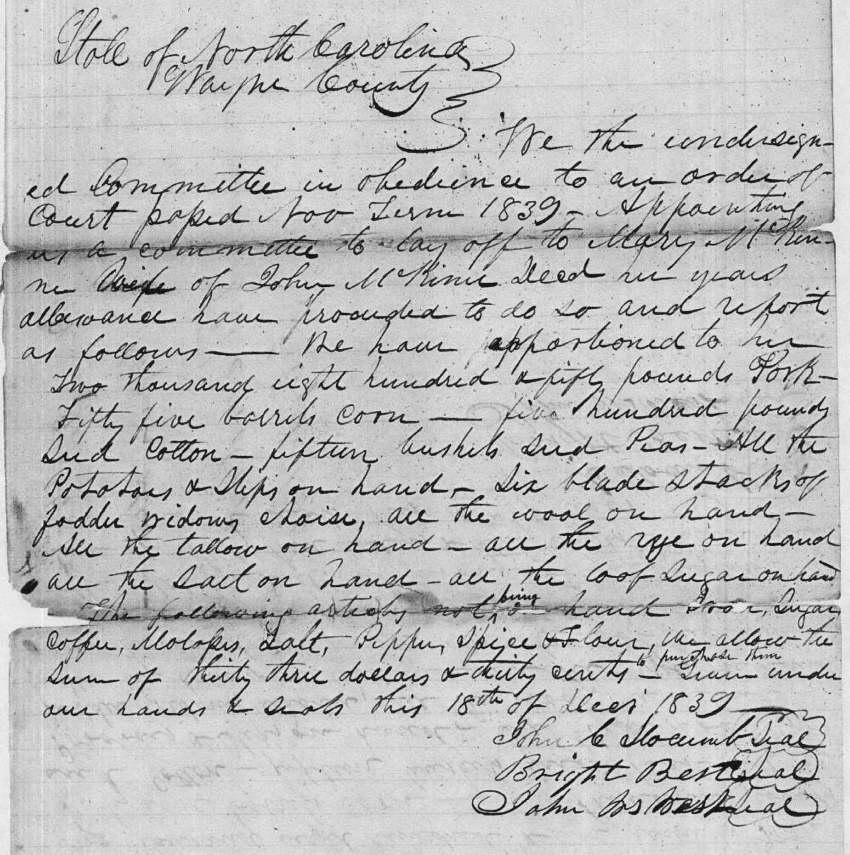 State of North Carolina
Wayne County
We the undersign-
ed Committee in obedience to an order of
Court passed Nov Term 1839 - Appointing
us a committee to lay off to Mary McKin-
ne Wife of John McKinne Decd her years
allowance have proceeded to do so and report
as follows — We have apportioned to her
Two thousand eight hundred & fifty pounds Pork -
Fifty five barrels corn — five hundred pounds
Seed Cotton - fifteen bushels seed Peas - All the
Potatoes & Slips on hand - Six blade stacks of
fodder widows choise, all the wool on hand -
All the tallow on hand - all the rye on hand
all the salt on hand - all the loof sugar on hand
The following articles not being on hand Iron, Sugar
Coffee, Molasses, Salt, Pepper, Spice & Flour, we allow the
sum of thirty three dollars & thirty cents to purchase them - Given under
our hands & seals this 18th of Decr 1839
John C Slocumb Seal
Bright Best Seal
John Best Seal